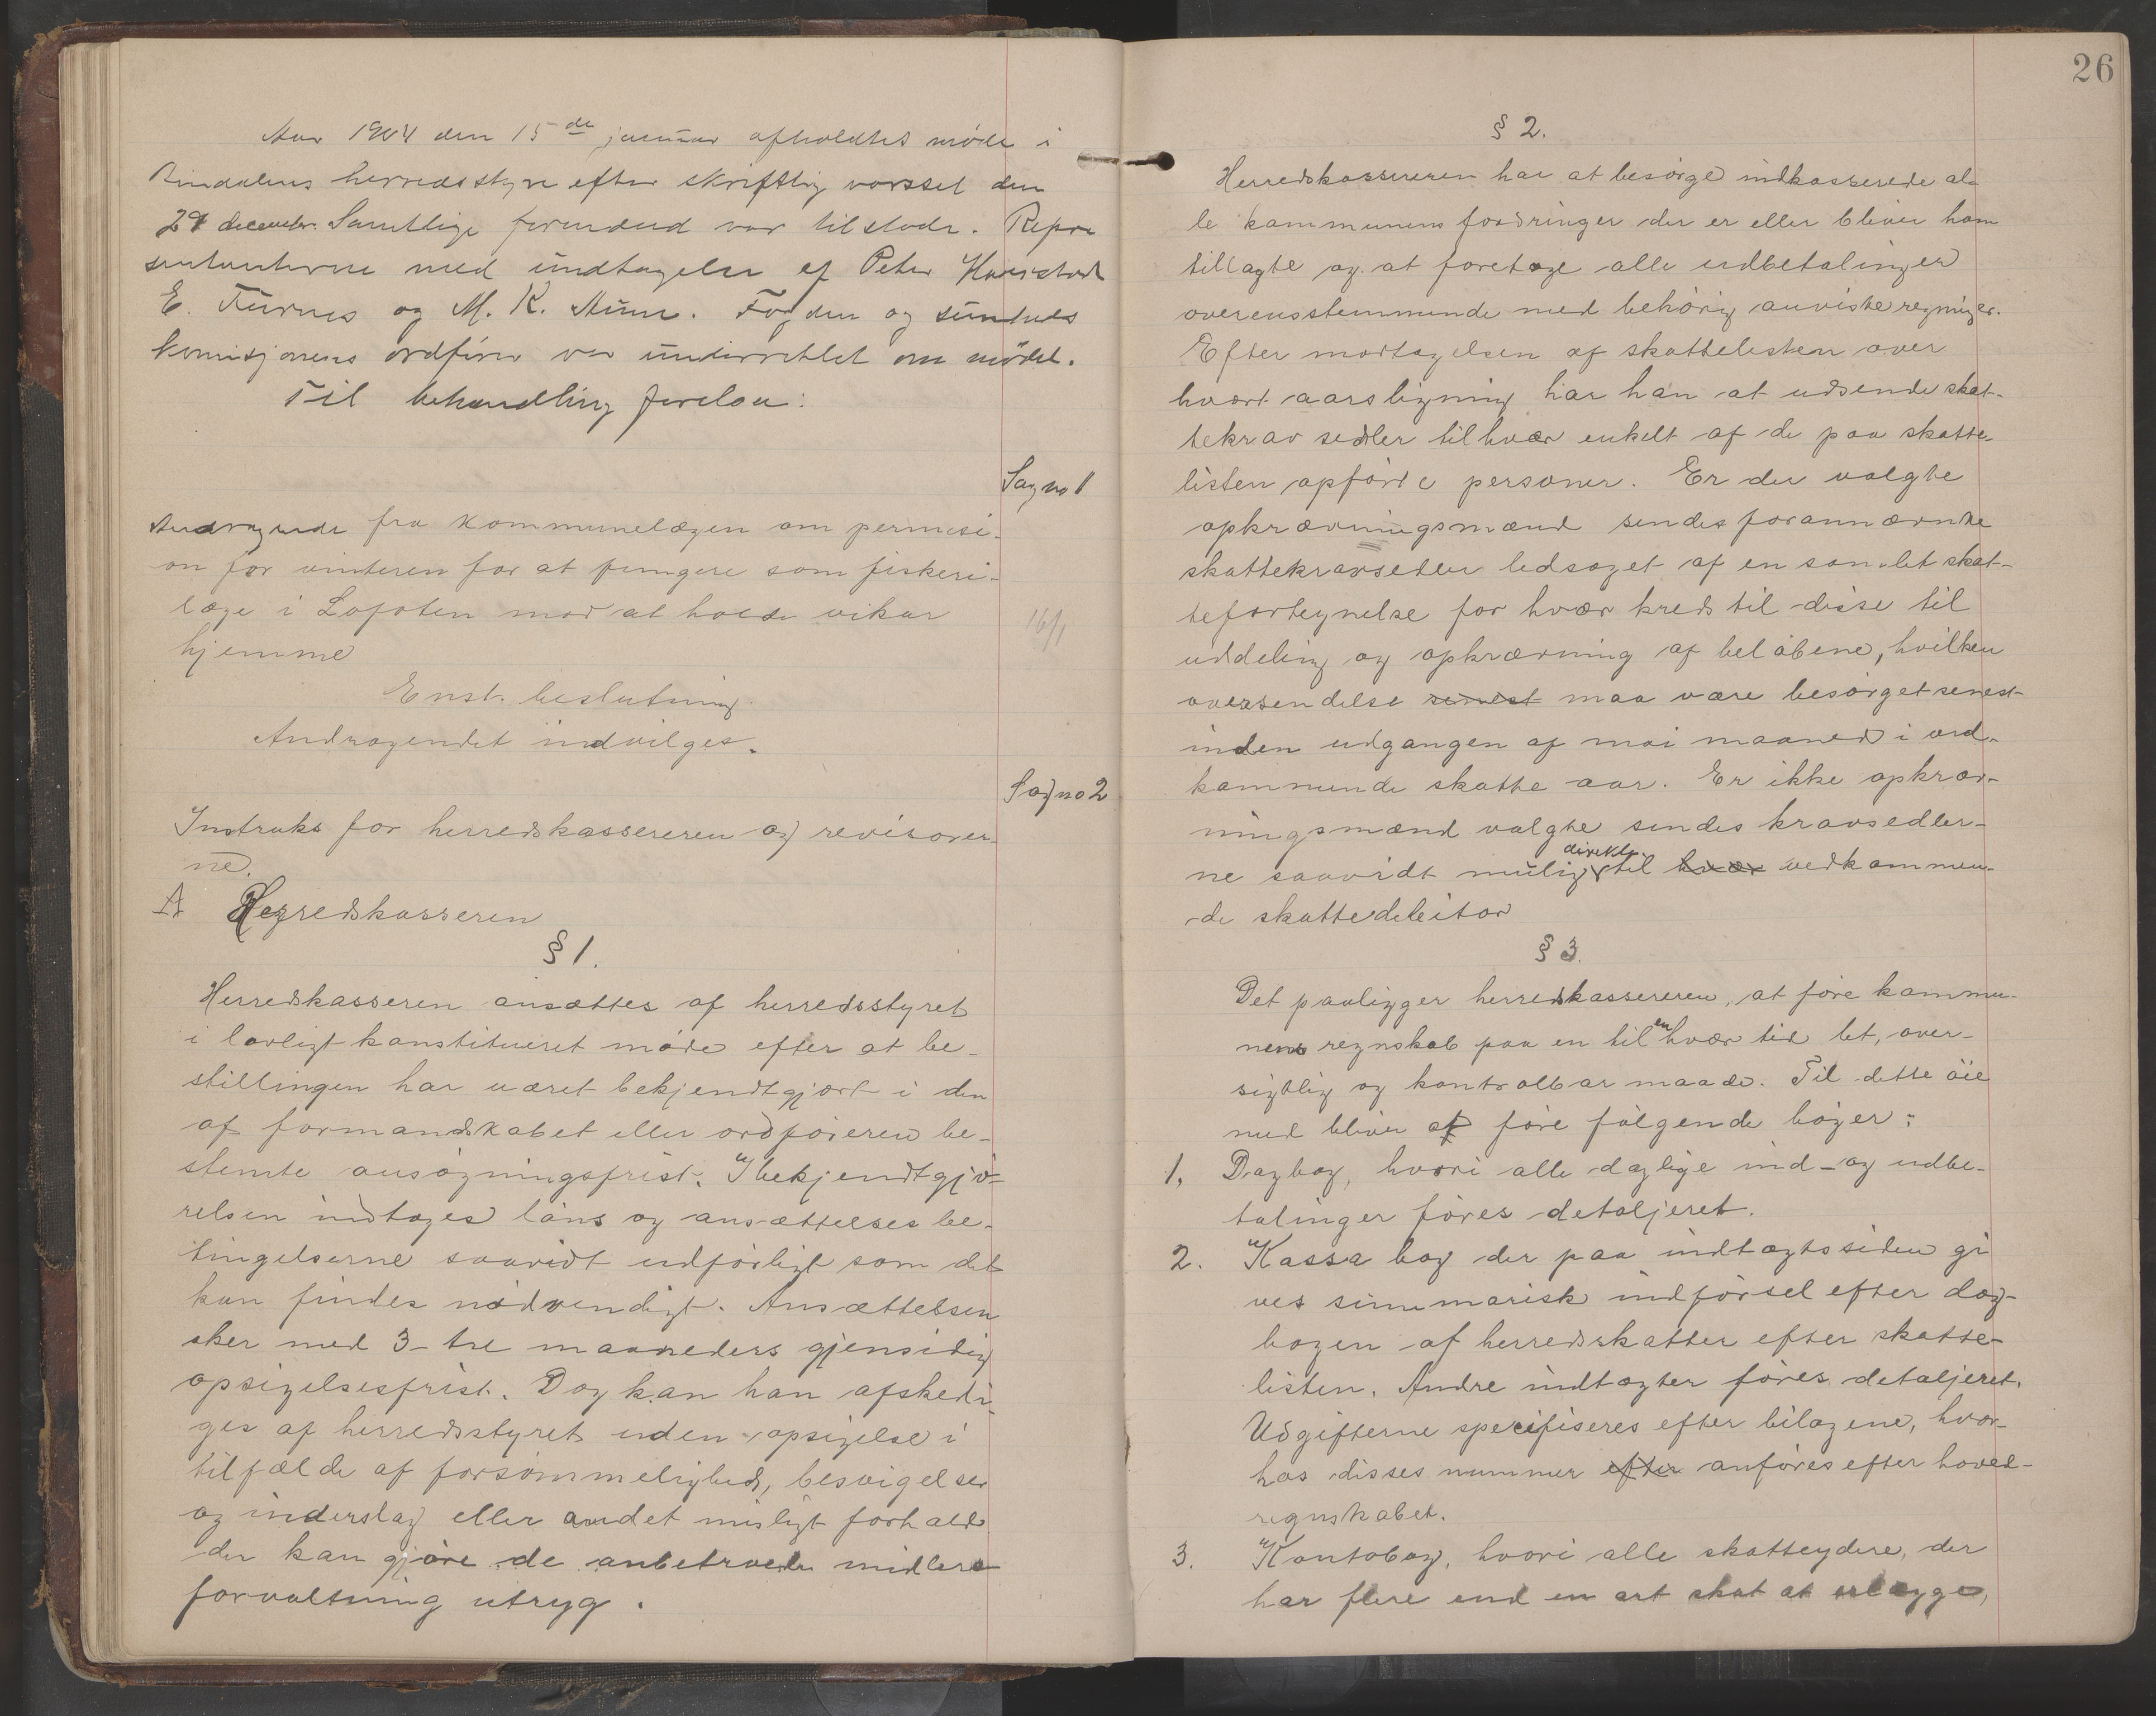 Aar 1904 den 15de januar afholdtes møde i
Rindalens herredsstyre efter skriftlig varsel den
29 december. Samtlige formænd var tilstede. Repre
sentanterne med undtagelse af Peter
E. Furnes og M. K. Fogden og sundheds
komisjonens ordfører var underrettet om mødet.
Til behandling forelaa:
Sag no 1
Andragende fra kommunelægen om permisi-
on for vinteren for at fungere som fiskeri-
læge i Lofoten mod at holde vikar
16/1
hjemme
Enst. beslutning
Andragendet indvilges.
Sag no 2
Instruks for herredskassereren og revisorer-
ne.
A Herredskasseren
§ 1.
Herredskasseren ansættes af herredsstyret
i lovligt konstitueret møde efter at be-
stillingen har været bekjendtgjort i den
af formandskabet eller ordføreren be-
stemte ansøgningsfrist. I bekjendtgjø-
relsen indtages løns og ansættelses be-
tingelserne saavidt udførligt som det
kan findes nødvendigt. Ansættelsen
sker med 3 - tre maaneders gjensidig
opsigelsesfrist. Dog kan han afskedi-
ges af herredsstyret uden opsigelse i
tilfælde af forsømmelighed, besvigelser
og underslag eller andet misligt forhald
der kan gjøre de anbetroede midlers
forvaltning utryg.
26
§ 2.
Herredskassereren har at besørge indkasserede al-
le kommunens fordringer der er eller bliver ham
tillagte og at foretage alle udbetalinger
overensstemmende med behørig anviste regninger.
Efter modtagelsen af skattelisten over
hvert aarsligning har han at udsende skat-
tekrav sedler til hver enkelt af de paa skatte-
listen opførte personer. Er der valgte
opkrævningsmænd sendes forannævnte
skattekravsedler ledsaget af en samlet skat-
tefortegnelse for hvær kreds til disse til
uddeling og opkrævning af beløbene, hvilken
oversendelse senest maa være besørget senest
inden udgangen af mai maaned i ved-
kommende skatte aar. Er ikke opkræv-
ningsmænd valgte sendes kravsedler-
ne saavidt mulig direkte til hvær vedkommen-
de skattedebitor
§ 3.
Det paaligger herredskassereren, at føre kommu-
nens regnskab paa en til en hvær tid let, over-
sigtlig og kontrolbar maade. Til dette øie
med bliver at føre følgende bøger:
1. Dagbog, hvori alle daglige ind- og udbe-
talinger føres detaljeret.
2. Kassa bog der paa indtægtssiden gi
ves summarisk indførsel efter dag-
bogen af herredsskatter efter skatte-
listen. Andre indtægter føres detaljeret.
Udgifterne specifiseres efter bilagene, hvor-
hos disses nummer efter anføres efter hoved-
regnskabet.
3. Kontobog, hvori alle skatteydere, der
har flere end en art skat at erlægge,